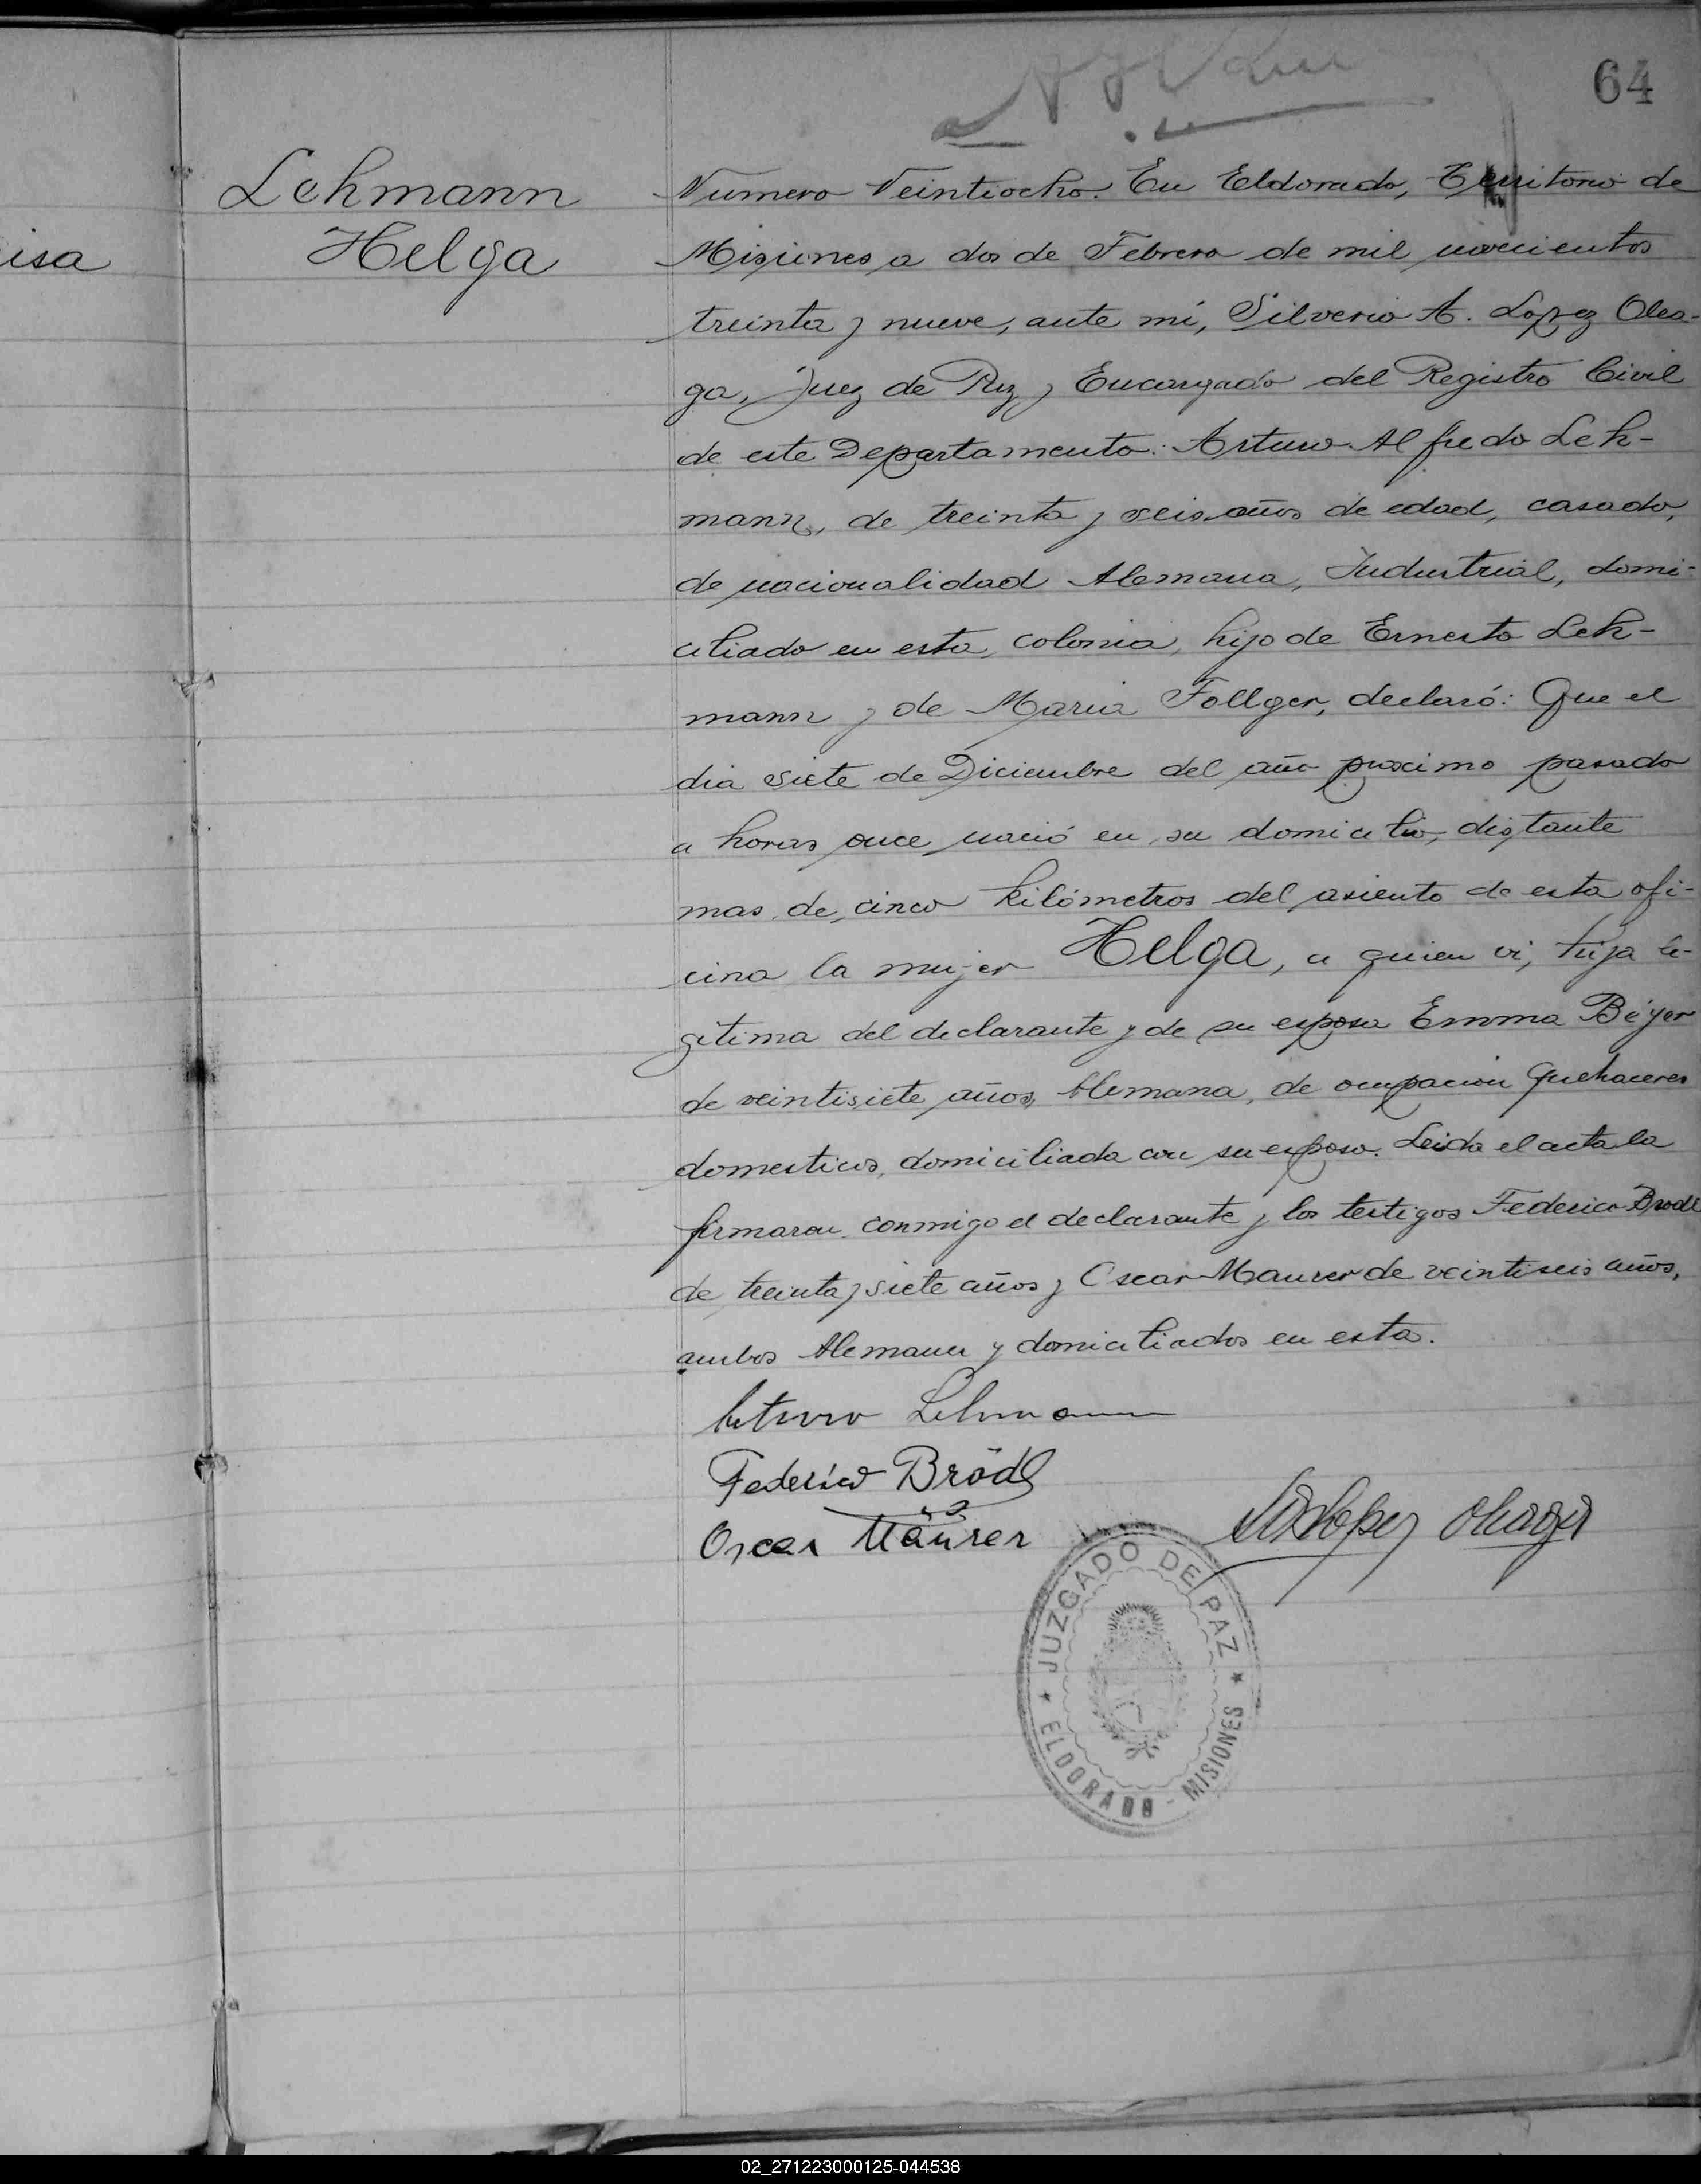 64
isa
Lehmann
Helga
Numero Veintiocho. En Eldorado, Territorio de
Misiones a dos de Febrero de mil novecientos
treinta y nueve, ante mi, Silverio A. Lopez Olea-
ga, Juez de Paz y Encargado del Registro Civil
de este Departamento: Arturo Alfredo Leh-
mann, de treinta y seis años de edad, casado,
de nacionalidad Alemana, Industrial, domi-
ciliado en esta colonia, hijo de Ernesto Leh-
mann y de Maria Follger, declaró: Que el
dia siete de Diciembre del año proximo pasado
a horas once nació en su domicilio, distante
mas de cinco kilómetros del asiento de esta ofi-
cina la mujer Helga, a quien vi, hija le-
gitima del declarante y de su esposa Emma Béyer
de veintisiete años, Alemana, de ocupacion quehaceres
domesticos, domiciliada con su esposo. Leida el acta la
firmaron conmigo el declarante y los testigos Federico Brodl
de treinta y siete años y Oscar Maurer de veintiseis años,
ambos Alemanes y domiciliados en esta.
Arturo Lehmann
Federico Brödl
Oscar Maurer
Lopez Oleaga
JUZGADO DE PAZ
ELDORADO - MISIONES
02_271223000125-044538